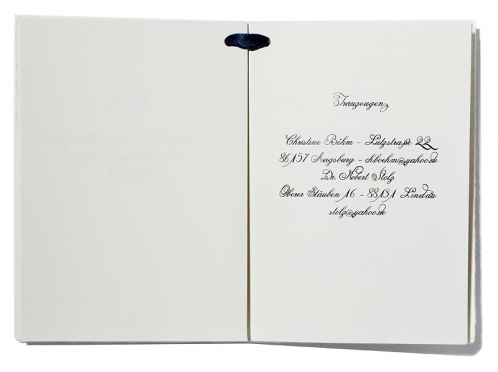 Trauzeugen
Christine Böhm - Lutzstraße 22
86157 Augsburg - chboehm@yahoo.de
Dr. Nobert Stolz
Oberer Stäuben 16 - 88131 Lindau
stolz@yahoo.de